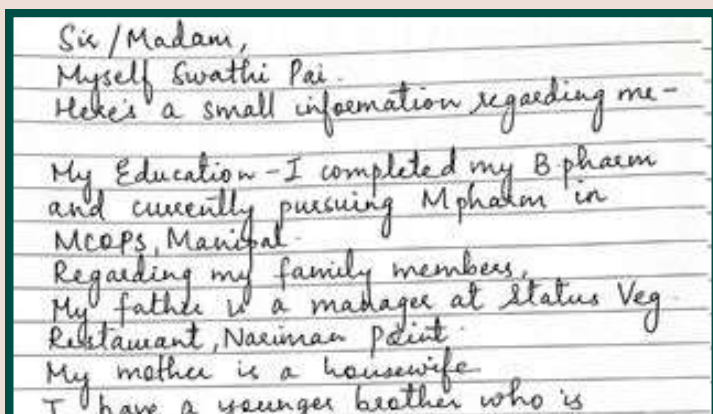 Sir/Madam,
Myself Swathi Pai.
Here's a small information regarding me-
My Education - I completed my B.pharm
and currently pursuing M pharm in
MCOPS, Manipal.
Regarding my family members,
My father is a manager at Status Veg
Restaurant, Nariman Point.
My mother is a housewife
I have a younger brother who is